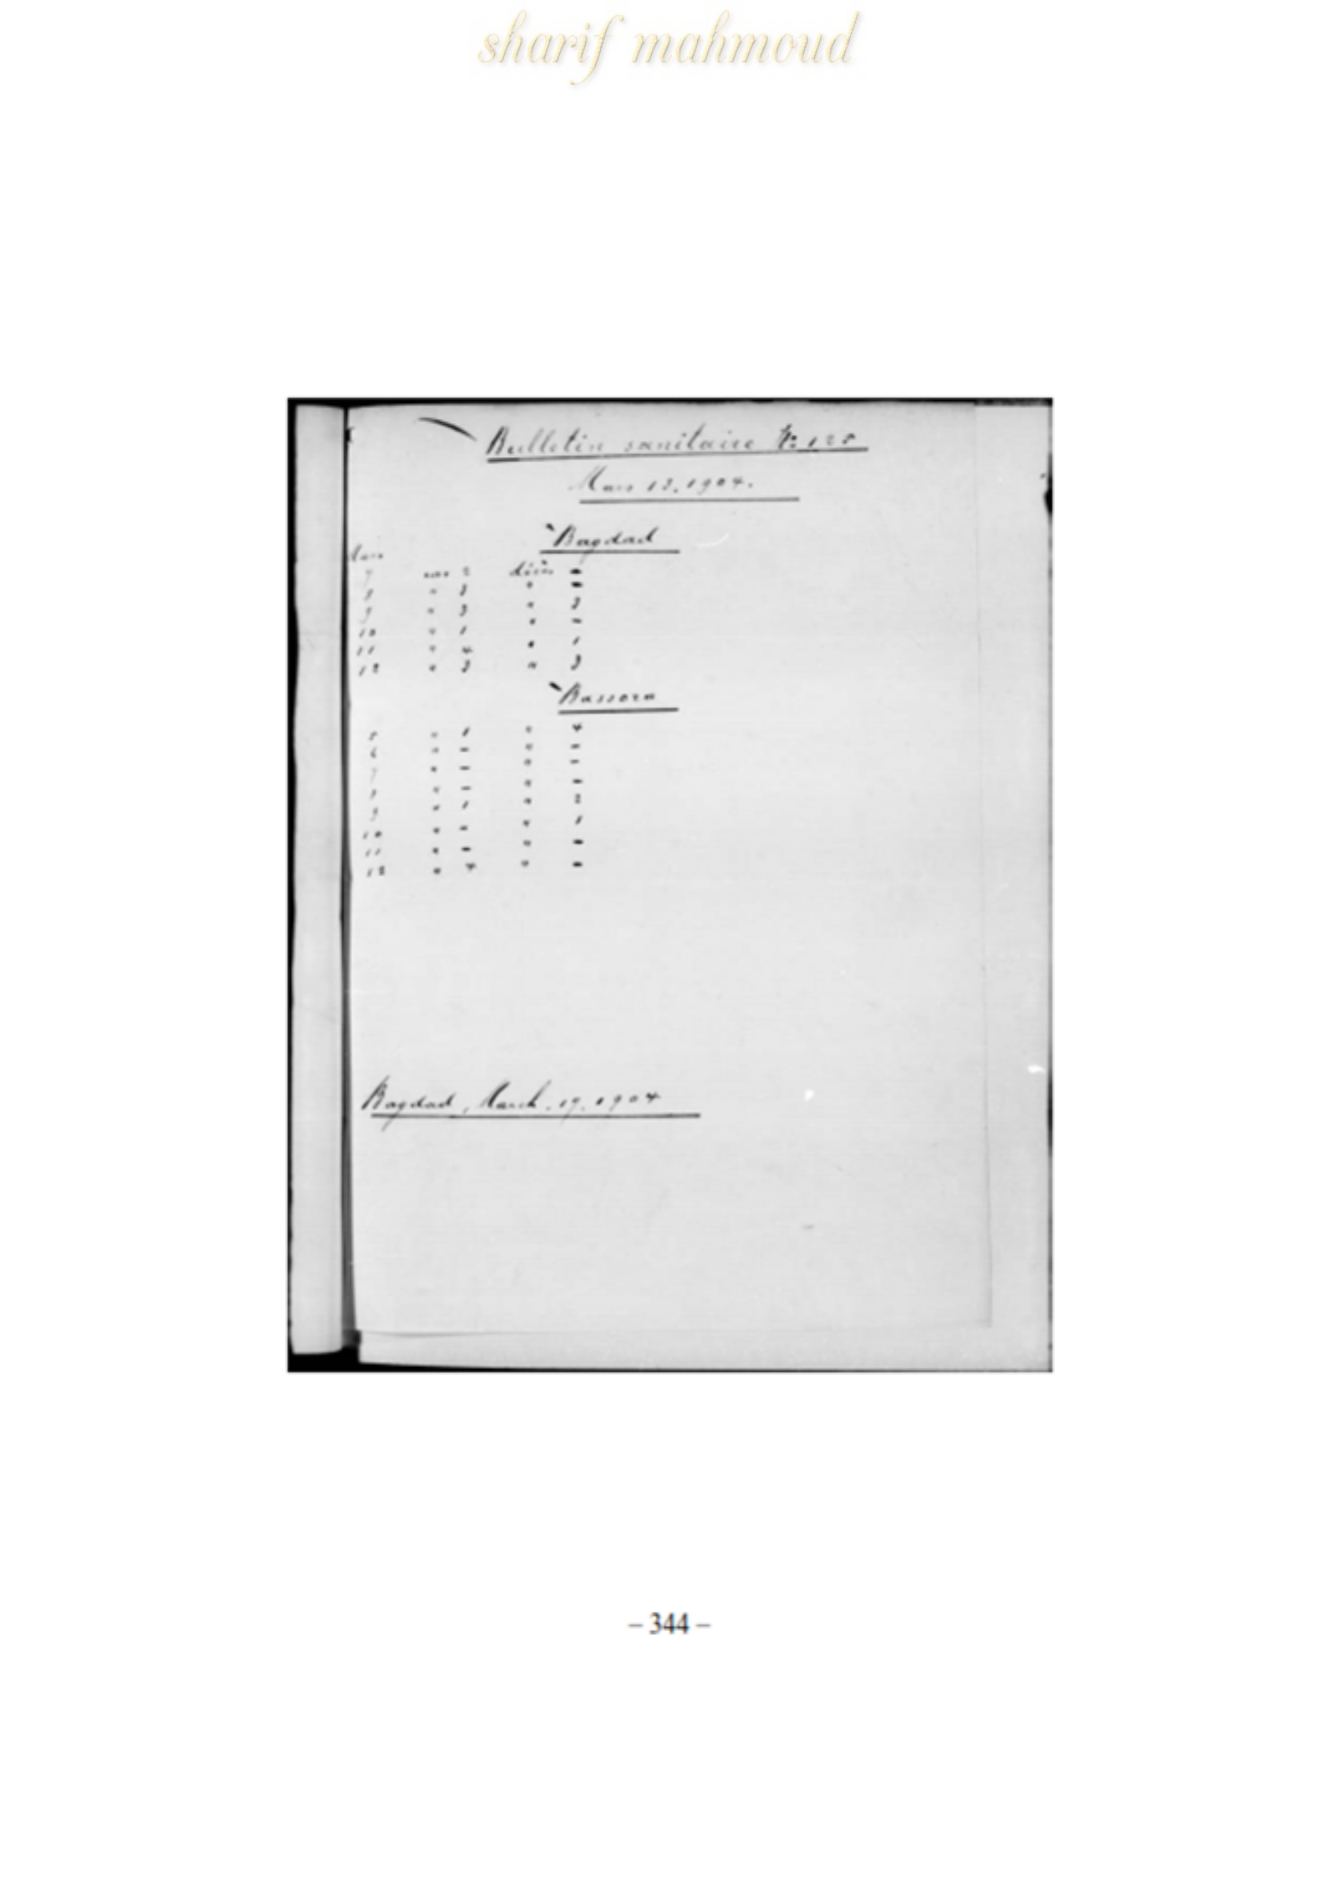 sharif mahmoud
Bulletin sanitaire No 125
Mars 13, 1904.
Bagdad
Mars
7 cas 2 décès -
8 " 3 " -
9 " 3 " 3
10 " 1 " -
11 " 4 " 1
12 " 3 " 3
Bassora
5 " 1 " 4
6 " - " -
7 " - " -
8 " - " -
9 " 1 " 2
10 " - " 1
11 " - " -
12 " 4 " -
Bagdad, March. 17, 1904
– 344 –